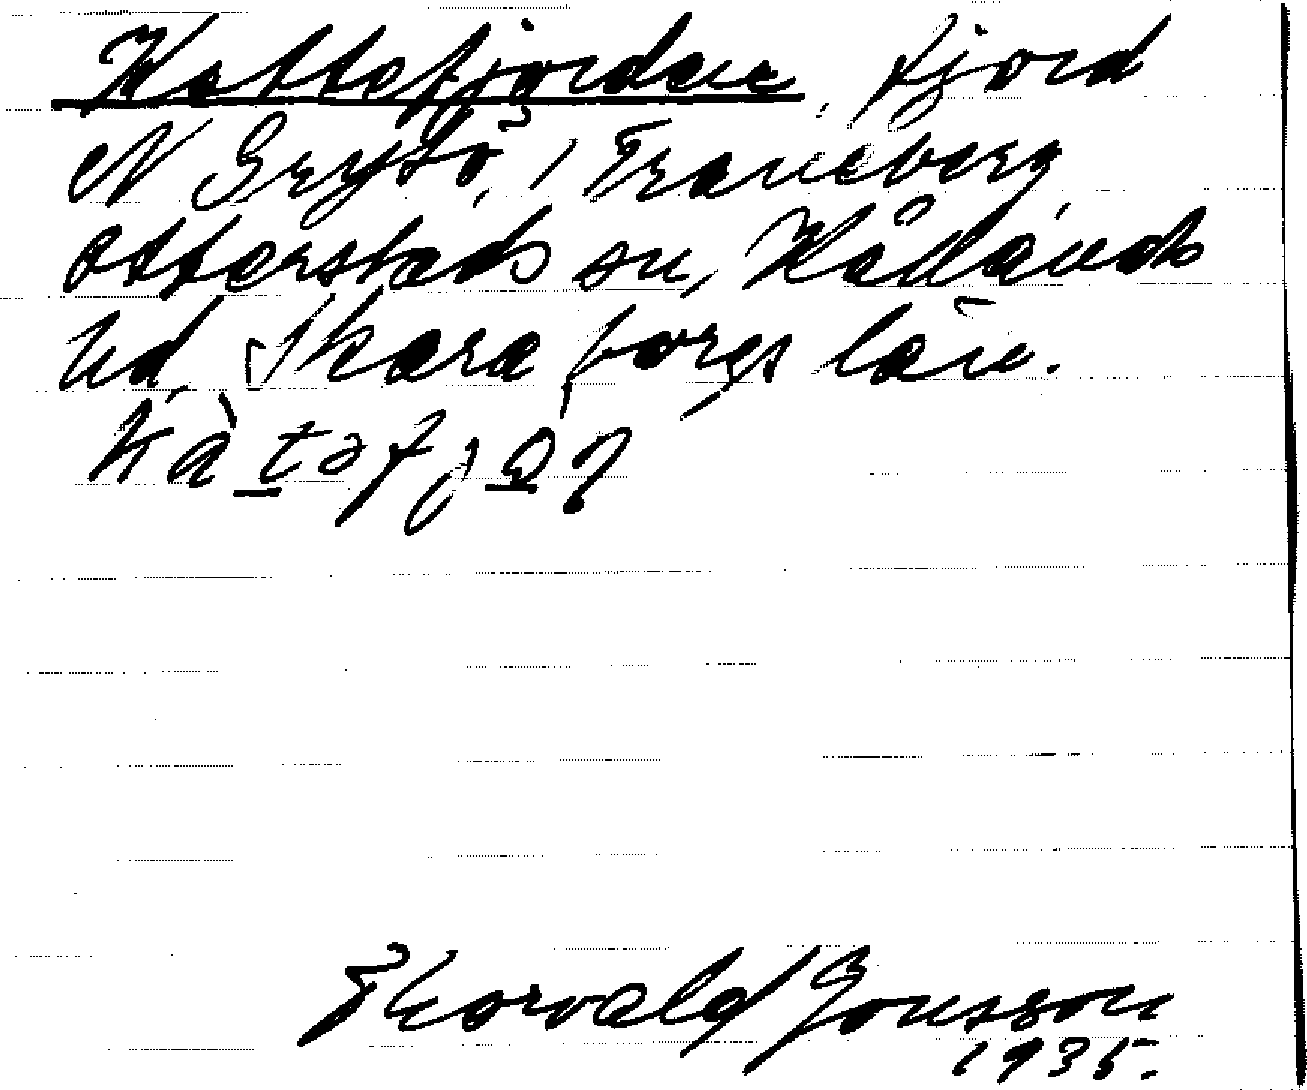 Kattefjorden, fjord
N Grytö, i Traneberg,
Otterstads sn, Kållands
hd, Skaraborgs län.
Thorvald Jonsson
1935.